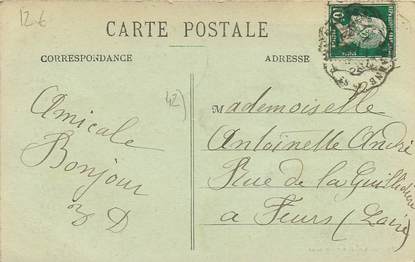 12 €
CARTE POSTALE
CORRESPONDANCE
ADRESSE
10
42)
Amicale
Bonjour
D
Mademoiselle
Antoinette André
Rue de la Guillotière
a Feurs (Loire)